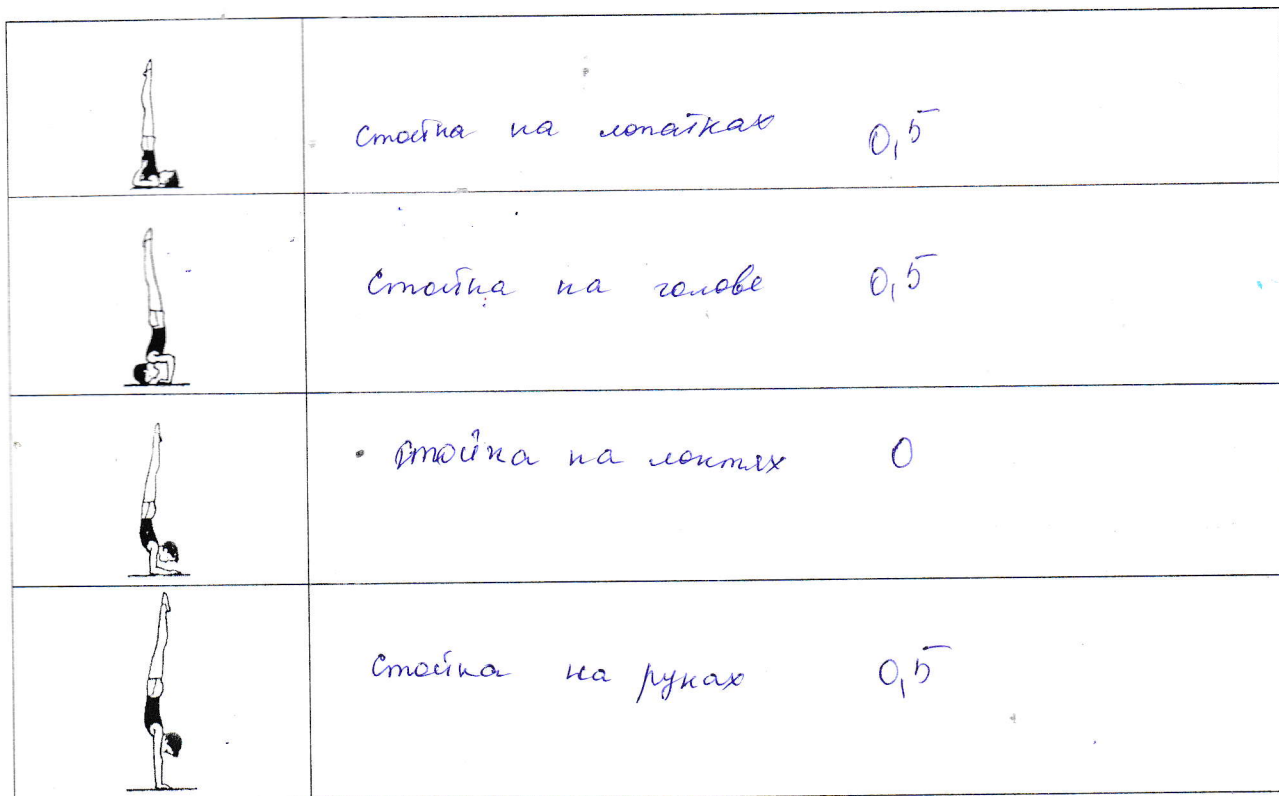 Стойка на лопатках 0,5
Стойка на голове 0,5
Стойка на локтях 0
Стойка на руках 0,5